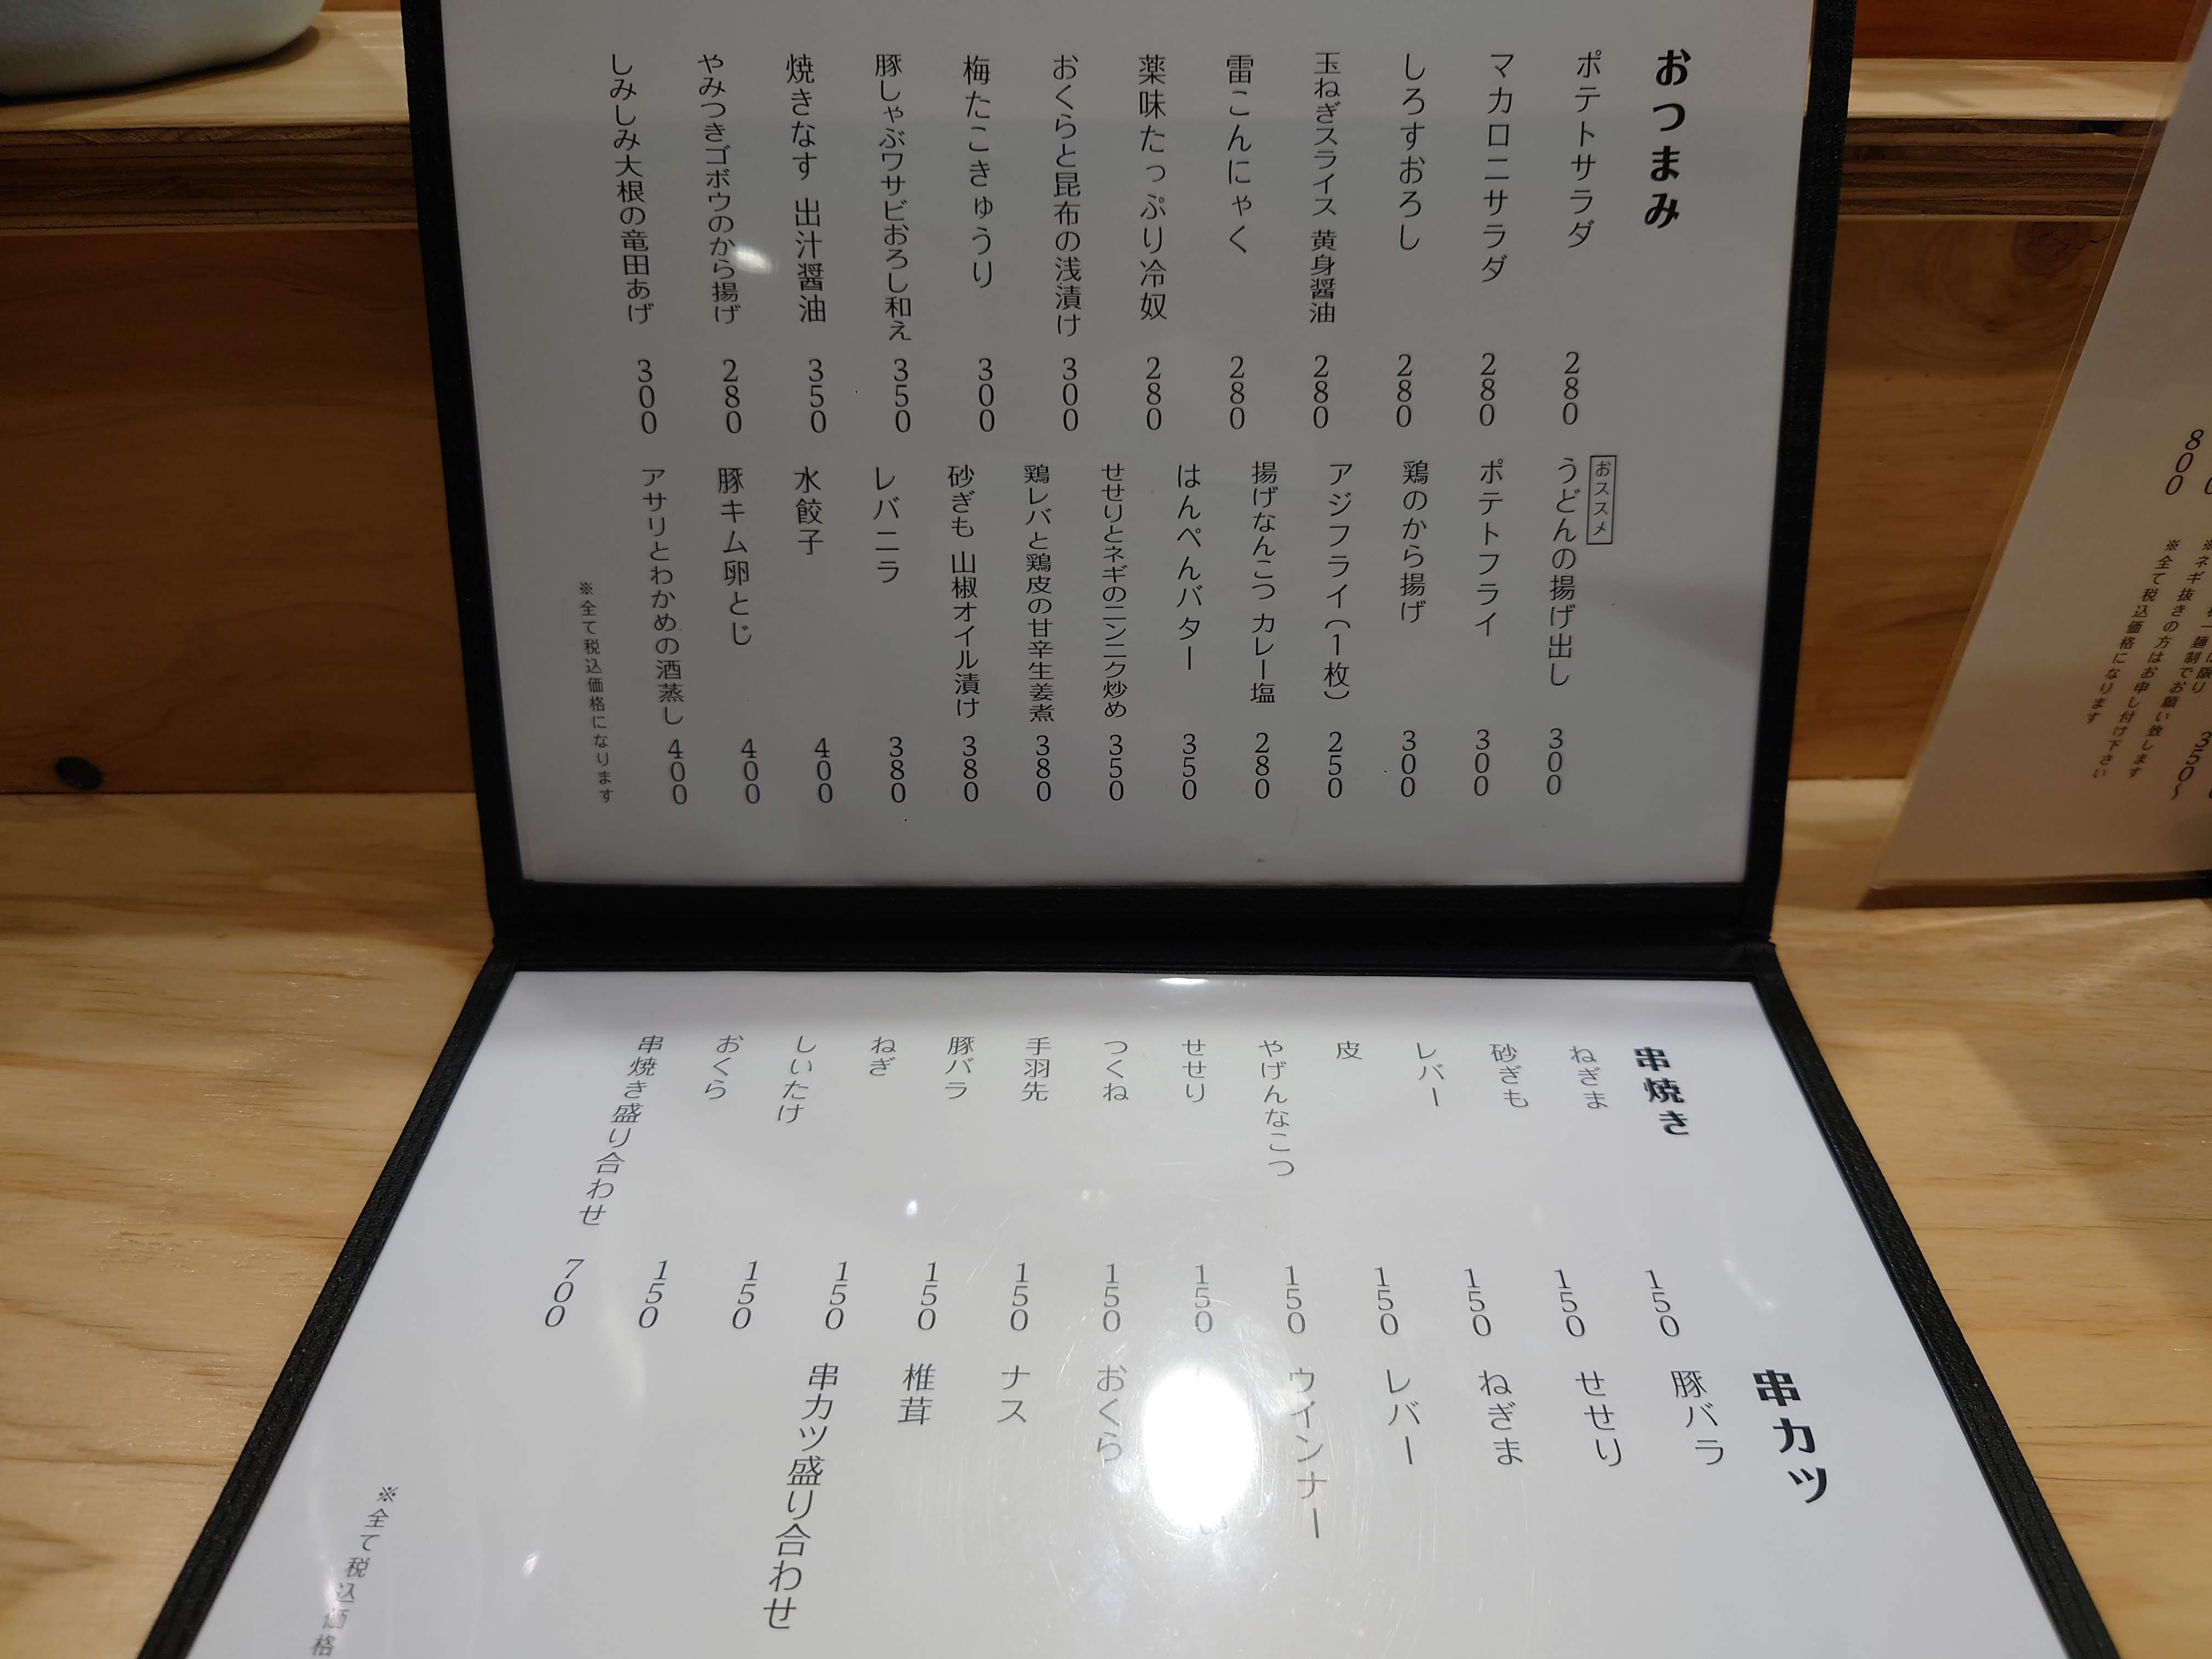 おつまみ
ポテトサラダ 280
マカロニサラダ 280
しろすおろし 280
玉ねぎスライス 黄身醤油 280
雷こんにゃく 280
薬味たっぷり冷奴 280
おくらと昆布の浅漬け 300
梅たこきゅうり 300
豚しゃぶワサビおろし和え 350
焼きなす 出汁醤油 350
やみつきゴボウのから揚げ 280
しみしみ大根の竜田あげ 300
おススメ
うどんの揚げ出し 300
ポテトフライ 300
鶏のから揚げ 300
アジフライ(1枚) 250
揚げなんこつ カレー塩 280
はんぺんバター 350
せせりとネギのニンニク炒め 350
鶏レバと鶏皮の甘辛生姜煮 380
砂ぎも 山椒オイル漬け 380
レバニラ 380
水餃子 400
豚キム卵とじ 400
アサリとわかめの酒蒸し 400
※全て税込価格になります
串焼き
ねぎま 150
砂ぎも 150
レバー 150
皮 150
やげんなこつ 150
せせり 150
つくね 150
手羽先 150
豚バラ 150
ねぎ 150
しいたけ 150
おくら 150
串焼き盛り合わせ 700
串カツ
豚バラ
せせり
ねぎま
レバー
ウインナー
おくら
ナス
椎茸
串カツ盛り合わせ
※全て税込価格
800
350〜
麺制でお願い致します
※ネギ抜きの方はお申し付け下さい
※全て税込価格になります